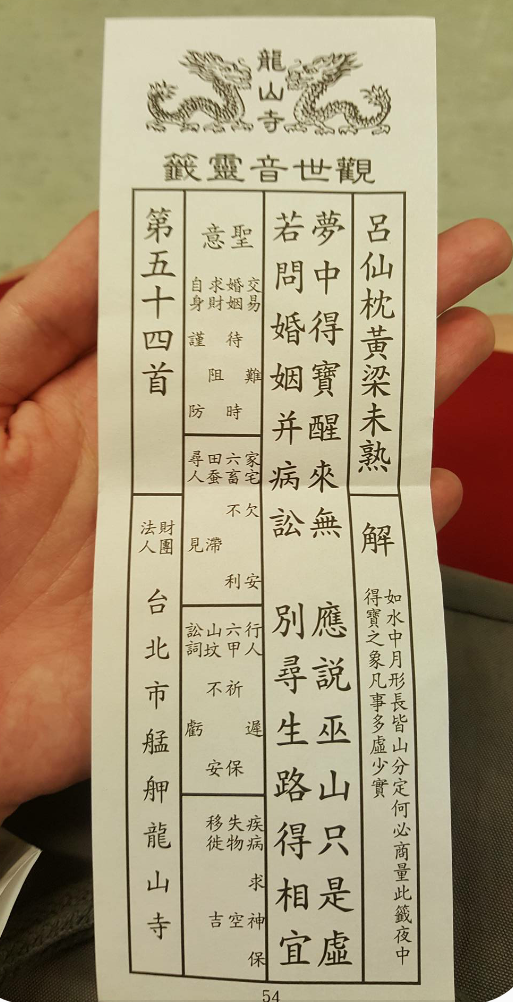 龍山寺
觀世音靈籤
呂仙枕黃梁未熟
解
如水中月形長皆山分定何必商量此籤夜中
得寶之象凡事多虛少實
夢中得寶醒來無 應説巫山只是虛
若問婚姻并病訟 別尋生路得相宜
聖意
交易 難
婚姻 待時
求財 阻
自身 謹防
家宅 欠安
六畜 不利
田蚕 滯
尋人 見
行人 遲
六甲 祈保
山坟 不安
訟詞 虧
疾病 求神保
失物 空
移徙 吉
第五十四首
財團
法人
台北市艋舺龍山寺
54